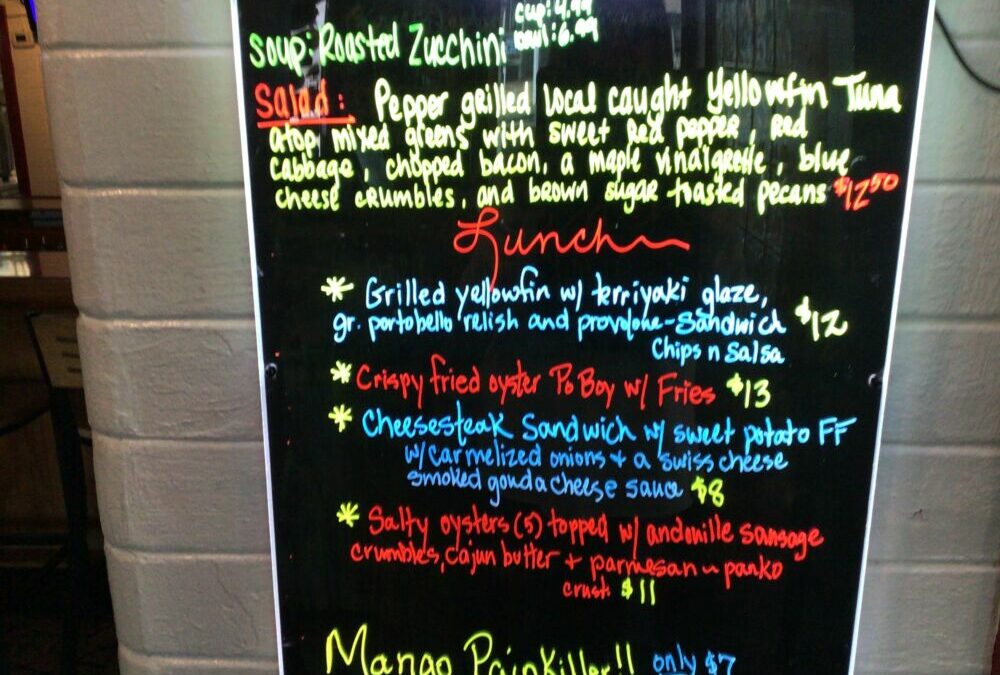 cup: 4.99
Soup: Roasted Zucchini bowl: 6.99
Salad: Pepper grilled local caught Yellowfin Tuna
atop mixed greens with sweet red pepper, red
cabbage, chopped bacon, a maple vinaigrette, blue
cheese crumbles, and brown sugar toasted pecans $12.50
Lunch
* Grilled yellowfin w/ terriyaki glaze,
gr. portobello relish and provolone - Sandwich $12
Chips n Salsa
* Crispy fried oyster Po Boy w/ Fries $13
* Cheesesteak Sandwich w/ sweet potato FF
w/ carmelized onions + a swiss cheese
smoked gouda cheese sauce $8
* Salty oysters (5) topped w/ andouille sausage
crumbles, cajun butter + parmesan ~ panko
crust $11
Mango Painkiller!! only $7